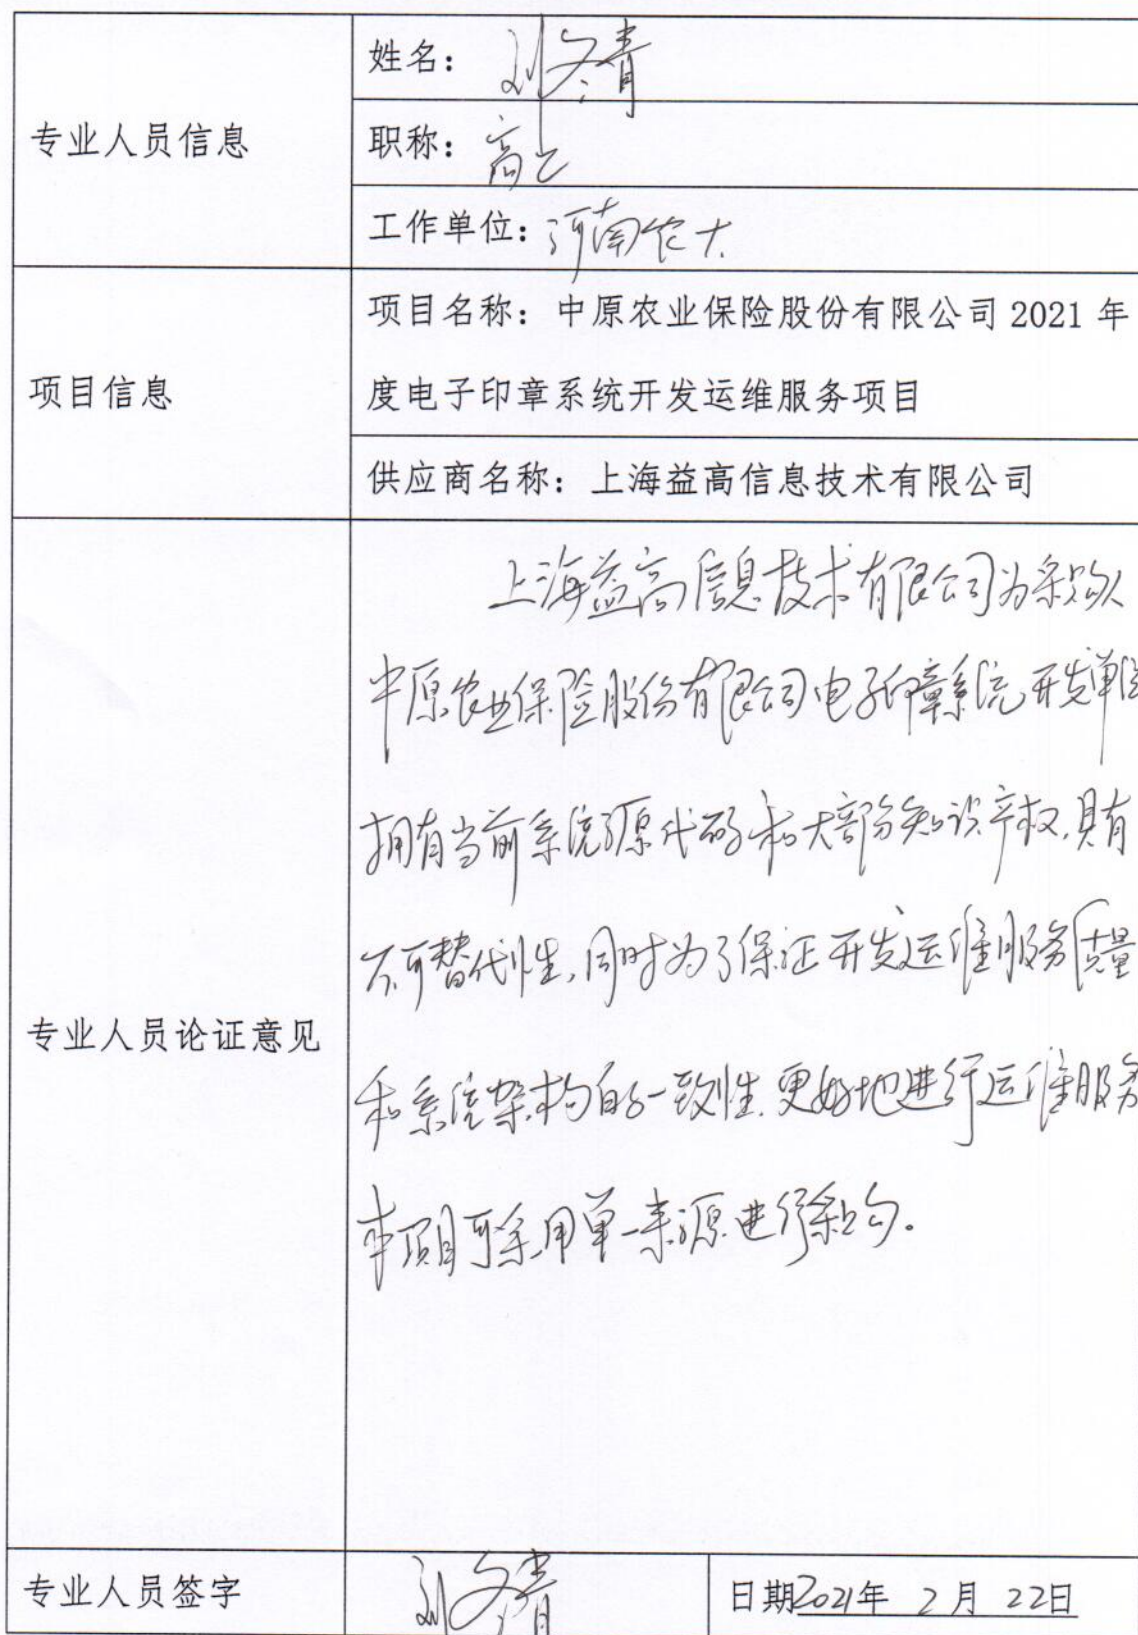 姓名：刘冬青
专业人员信息
职称：高工
工作单位：河南农大
项目名称：中原农业保险股份有限公司 2021 年
项目信息
度电子印章系统开发运维服务项目
供应商名称：上海益高信息技术有限公司
上海益高信息技术有限公司为采购人
中原农业保险股份有限公司电子印章系统开发单位
拥有当前系统源代码和大部分知识产权,具有
不可替代性,同时为了保证开发运维服务质量
专业人员论证意见
和系统架构的一致性,更好地进行运维服务
本项目可采用单一来源进行采购。
专业人员签字 刘冬青 日期2021年 2月 22日